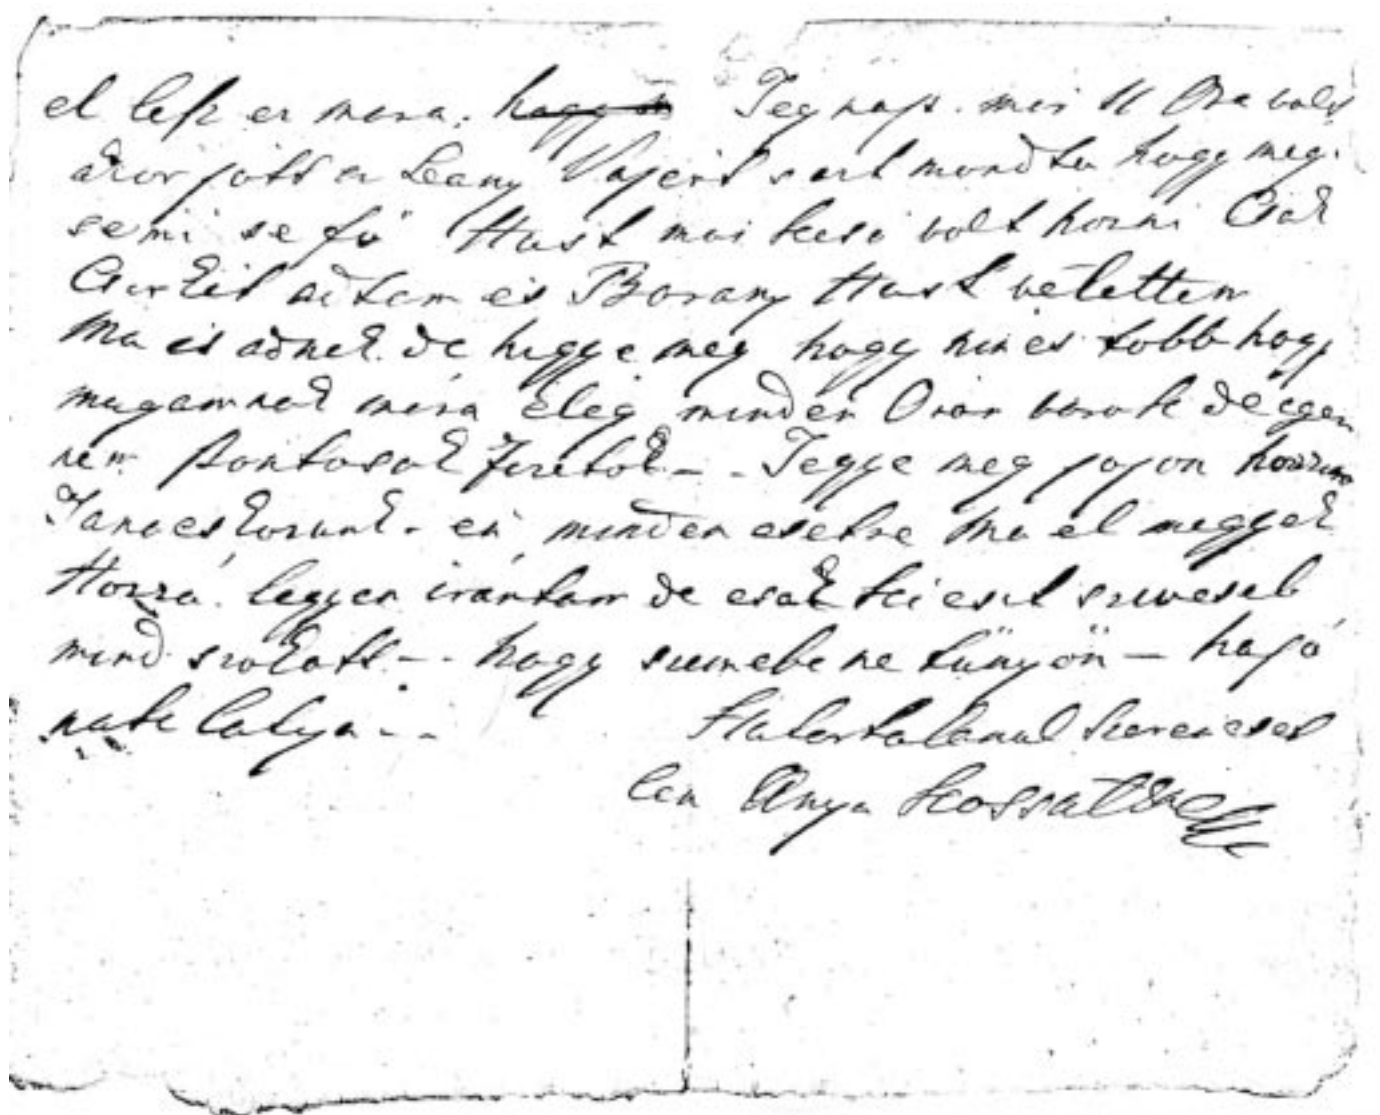 el lesz er mara. hogy Tegnap. mar 11 Ora volt
akor jött a Leany Vajert s azt mondta hogy meg
semi se fő Hust mar keső volt hozni Csak
Csirkét adtam és Barany Hust vétettem
Ma is adnék. de higgye meg hogy nincs többb hogy
magamnak mára Eleg minden Orar varok de igen
nem pontosak Jöjjön hozzám
Tanacskozunk. én minden esetre ma el megyek
Hozzá. legyen irántam de csak ki csit szivesebb
mind szokott -- hogy szemebe ne tünyön -- ha jó
nak latya --
Határtalanul szerencsét
len Anya